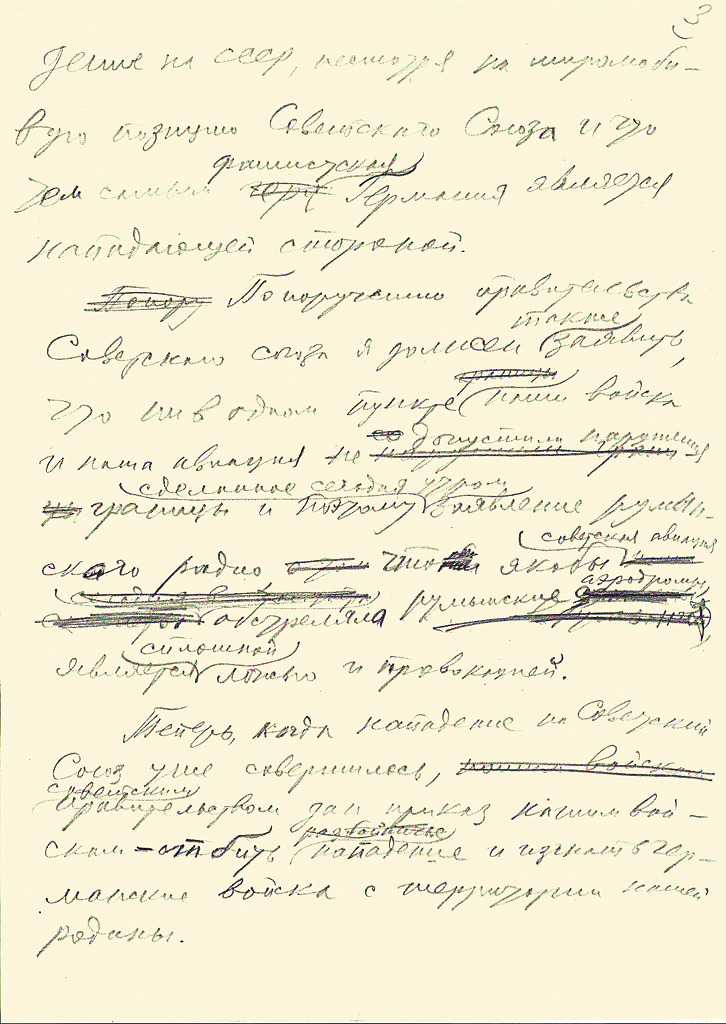 3
дение на СССР, несмотря на миролюби-
вую позицию Советского Союза и что
фашистская
тем самым Германия является
нападающей стороной.
Попору По поручению правительства
также
Советского союза я должен заявить,
границы
что ни в одном пункте наши войска
допустили нарушения
и наша авиация не
сделанное сегодня утром
границы и поэтому заявление румын-
советская авиация
ского радио что якобы
аэродромы,
обстреляла румынские
сплошной
является ложью и провокацией.
Теперь, когда нападение на Советский
Союз уже совершилось, нашим войскам
советским
правительством дан приказ нашим вой-
разбойничье
скам – отбить нападение и изгнать гер-
манские войска с территории нашей
родины.